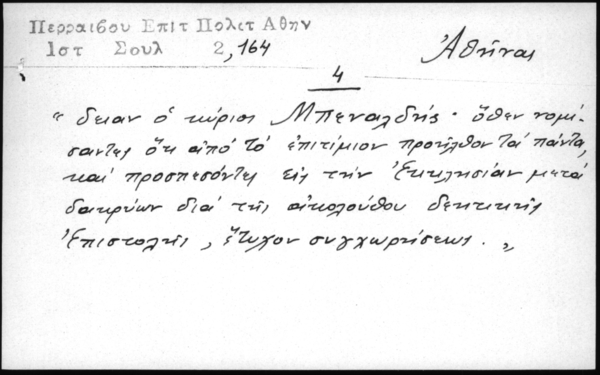 Περραιβου Επιτ Πολιτ Αθην
Ιστ Σουλ 2,164
Ἀθῆναι
4
" δειαν ὁ κύριος Μπεναλδής· ὅθεν νομί-
σαντες ὅτι ἀπό τό ἐπιτίμιον προῆλθον τά πάντα,
καί προσπεσόντες εἰς τήν Ἐκκλησίαν μετά
δακρύων διά τῆς ἀκολούθου δεητικῆς
Ἐπιστολῆς, ἔτυχον συγχωρήσεως. "